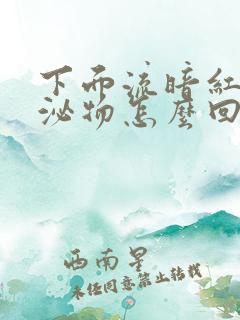 下而流暗红
泌物怎麽回
西南星
未经同意禁止转载